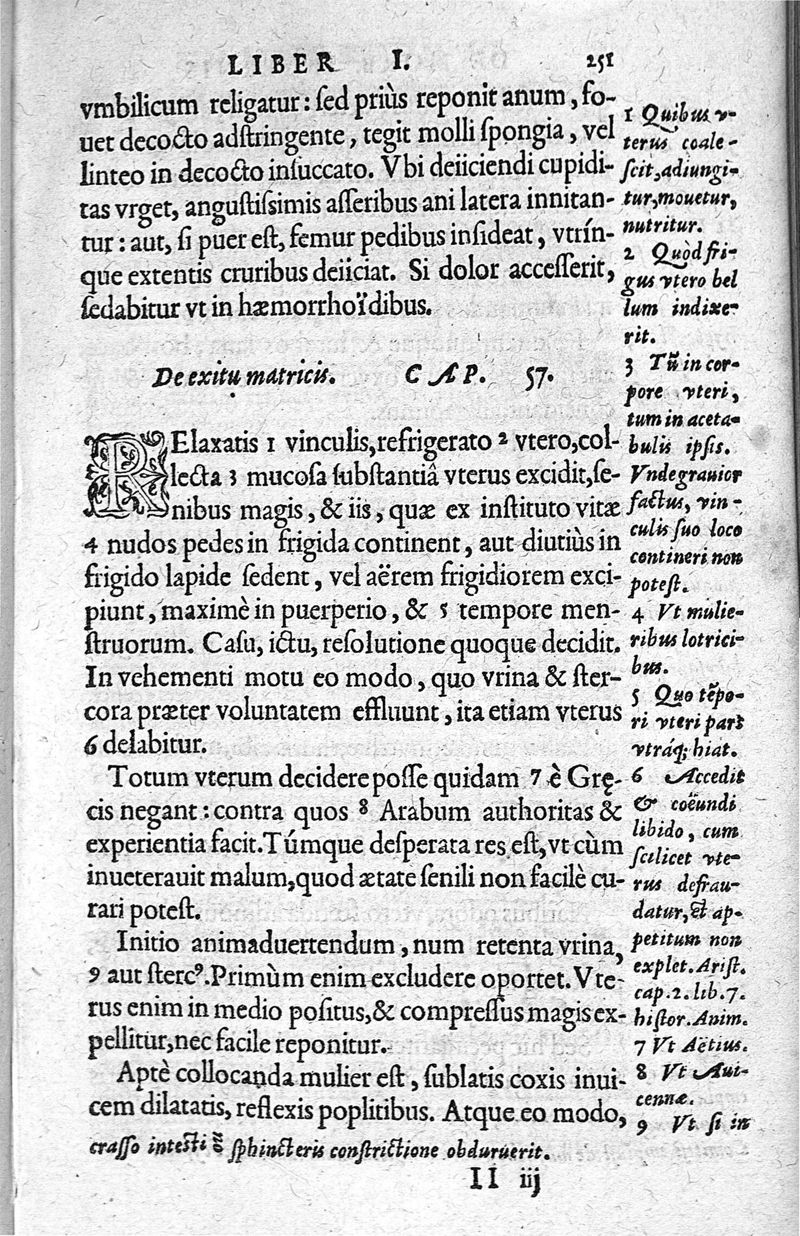 LIBER I. 251
vmbilicum religatur: sed priùs reponit anum, fo-
uet decocto adstringente, tegit molli spongia, vel
linteo in decocto insuccato. Vbi deiiciendi cupidi-
tas vrget, angustissimis asseribus ani latera innitan-
tur: aut, si puer est, femur pedibus insideat, vtrín-
que extentis cruribus deiiciat. Si dolor accesserit,
sedabitur vt in hæmorrhoïdibus.
De exitu matricis. CAP. 57.
RElaxatis 1 vinculis, refrigerato 2 vtero, col-
lecta 3 mucosa substantiâ vterus excidit, se-
nibus magis, & iis, quæ ex instituto vitæ
4 nudos pedes in frigida continent, aut diutiùs in
frigido lapide sedent, vel aërem frigidiorem exci-
piunt, maximè in puerperio, & 5 tempore men-
struorum. Casu, ictu, resolutione quoque decidit.
In vehementi motu eo modo, quo vrina & ster-
cora præter voluntatem effluunt, ita etiam vterus
6 delabitur.
Totum vterum decidere posse quidam 7 è Grę-
cis negant: contra quos 8 Arabum authoritas &
experientia facit. Túmque desperata res est, vt cùm
inueterauit malum, quod ætate senili non facilè cu-
rari potest.
Initio animaduertendum, num retenta vrina,
9 aut stercꝰ. Primùm enim excludere oportet. Vte-
rus enim in medio positus, & compressus magis ex-
pellitur, nec facile reponitur.
Aptè collocanda mulier est, sublatis coxis inui-
cem dilatatis, reflexis poplitibus. Atque eo modo,
1 Quibus v-
terus coale-
scit, adiungi-
tur, mouetur,
nutritur.
2 Quòd fri-
gus vtero bel
lum indixe-
rit.
3 Tū in cor-
pore vteri,
tum in aceta-
bulis ipsis.
Vnde grauior
factus, vin-
culis suo loco
contineri non
potest.
4 Vt mulie-
ribus lotrici-
bus.
5 Quo tẽpo-
ri vteri pars
vtráq; hiat.
6 Accedit
& coëundi
libido, cum
scilicet vte-
rus defrau-
datur, & ap-
petitum non
explet. Arist.
cap. 2. lib. 7.
histor. Anim.
7 Vt Aëtius.
8 Vt Aui-
cennæ.
9 Vt si in
crasso intesti sphincteris constrictione obduruerit.
II iij